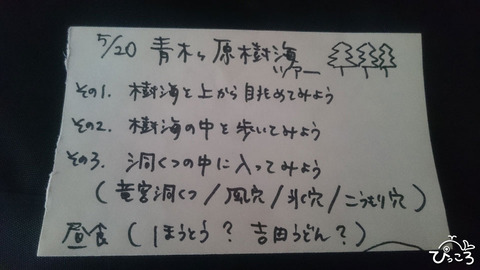 5/20 青木ヶ原樹海
ツアー
その1. 樹海を上から眺めてみよう
その2. 樹海の中を歩いてみよう
その3. 洞くつの中に入ってみよう
(竜宮洞くつ/風穴/氷穴/こうもり穴)
昼食 (ほうとう? 吉田うどん?)
ぴっころ